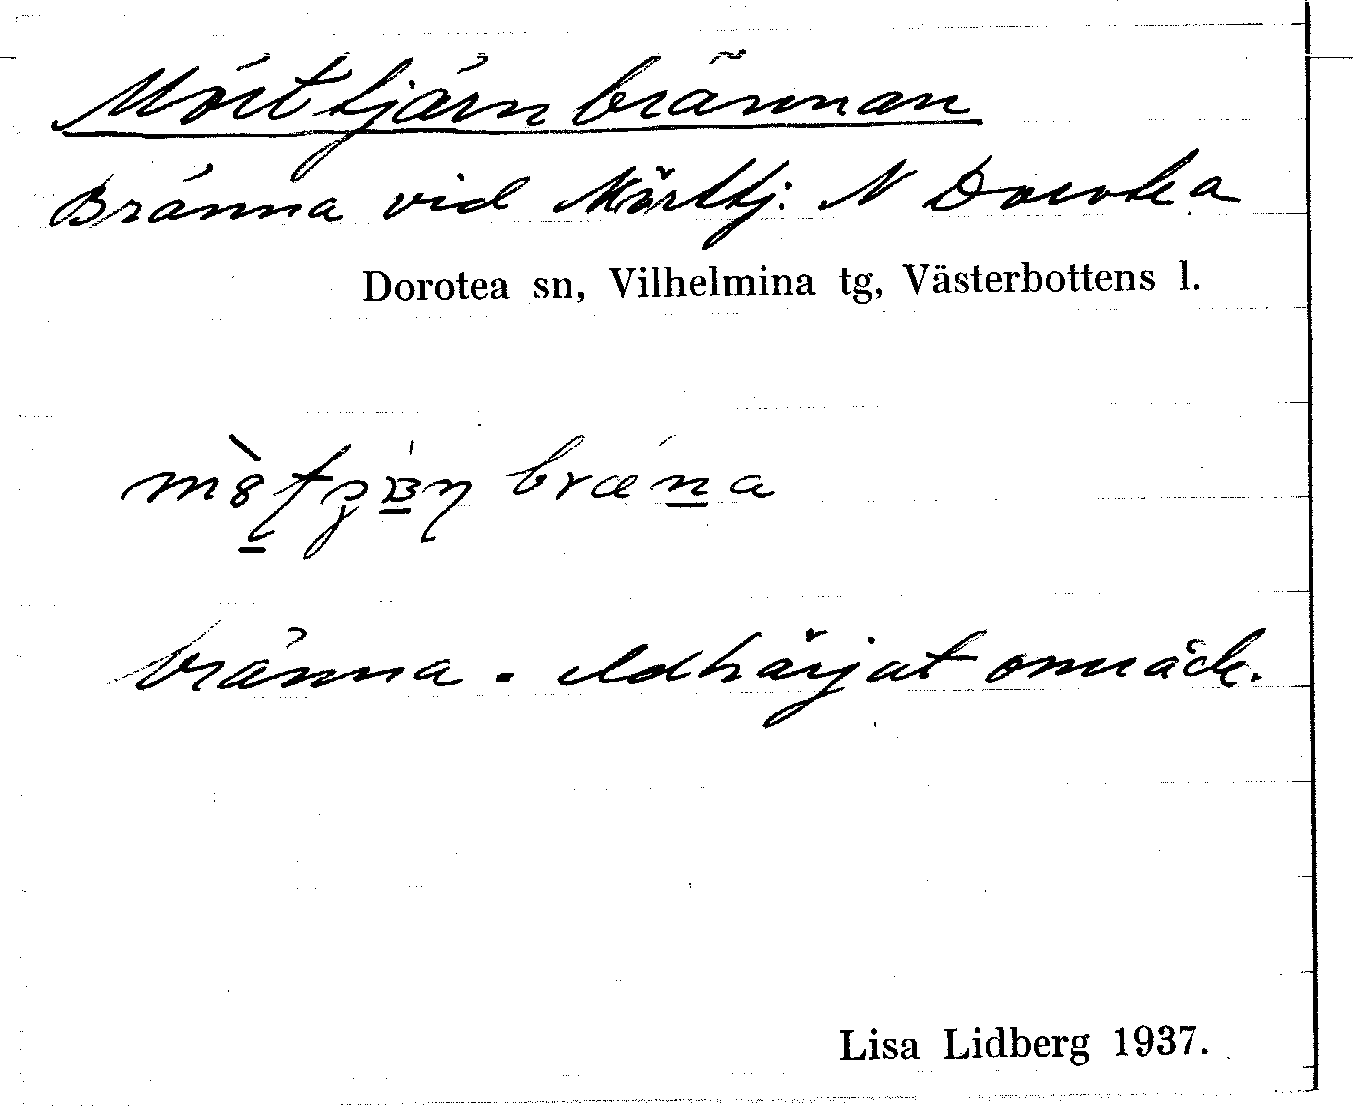 Mörttjärnbrännan
Bränna vid Mörttj: N Dorotea
Dorotea sn, Vilhelmina tg, Västerbottens l.
bränna. eldhärjat område.
Lisa Lidberg 1937.